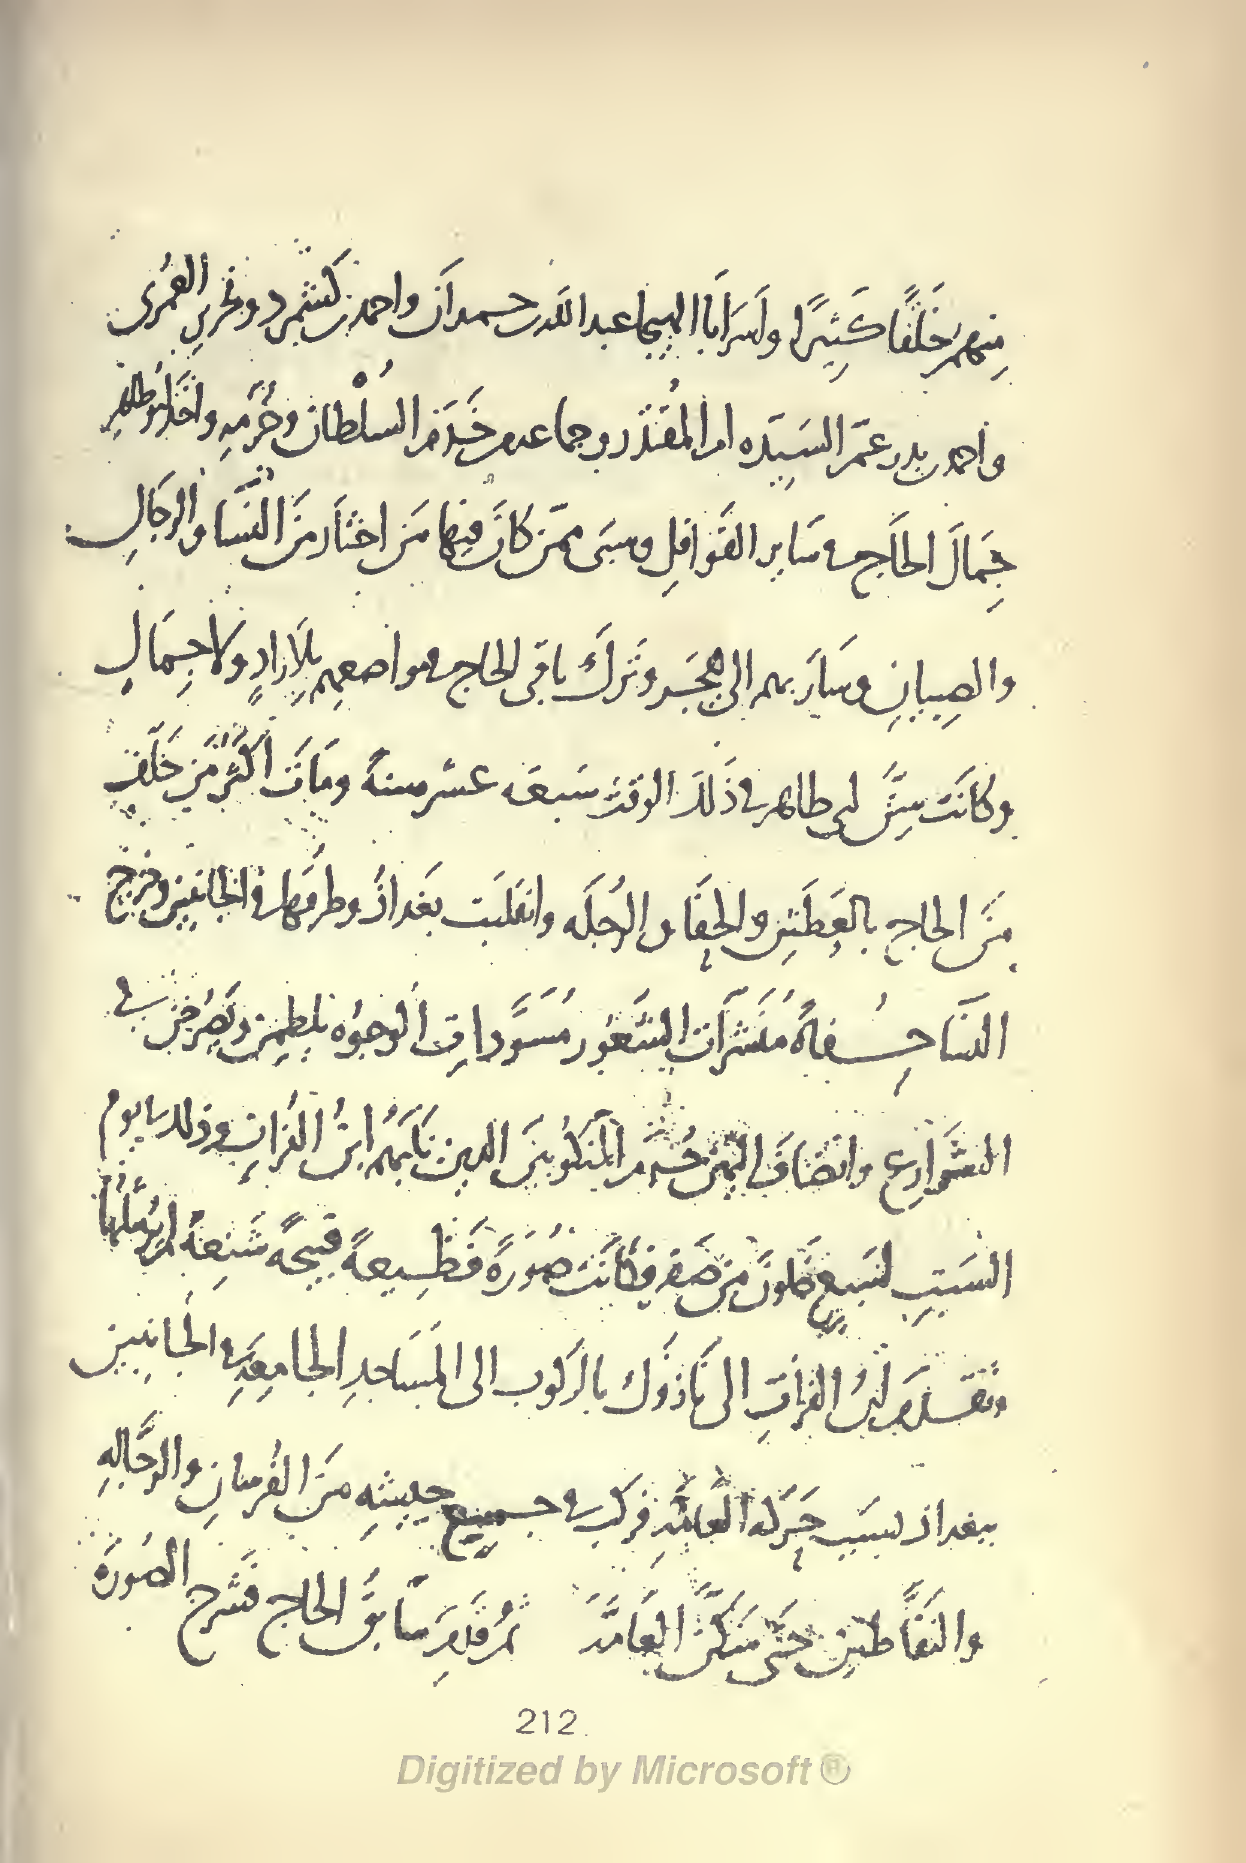 منهم خَلقًا كَثِيرًا وَاسَرَ اَبا الهيجا عبد الله بن حمدان واحمد بن كشمرد ونحرير العُمرى
واحمد بن بدر عمّ السَيِّده ام المُقتَدر وجماعه من خَدَم السُلْطان وحُرَمِهِ واخَذَ ابو طاهر
جِمَالَ الحَاج وسَاير القَوافِل وسبَى ممّن كانَ فيها مَن اختَارَ منَ النّسَا والرجَالِ
والصِبيانِ وسَارَ بهم الى هَجَر وتَركَ باقى الحاج في مواضعهم بِلاَ زادٍ ولا جِمَالٍ
وكانَت سِنُّ ابى طاهر في ذَلكَ الوقت سَبعَه عشر سنةً ومَاتَ اكثَرُ مَن خَلّفَهُ
مِنَ الحاج بالعَطَشِ والحفَا والرُجلَه وانقَلبَت بَغداذُ وطُرقُها في الجانبَينِ وخرجَ
النسَا حُفاةً مُنَشَّرَات الشُعُور مُسَوَّدَات الوجُوه يلطِمنَ ويَصرُخنَ في
الشَوارِع وانضَافَ اليهن حُرَم المنكُوبينَ الذين نكَبَهُم ابنُ الفُراتِ وذلك يوم
السَبتِ لسَبعٍ خلونَ من صَفَر فكَانَت صُورَةً فَظِيعةً قبيحةً شَنِعةً لم يُرَ مثلُها
وتقدّمَ ابنُ الفُراتِ الى نَازُوك بالرُكوب الى المَسَاجدِ الجامِعَةِ في الجانِبين
ببغداذ لسَبَبِ حَرَكه العامَّهِ فركبَ في جميع جيشِهِ منَ الفُرسانِ والرجَّالهِ
والنَفّاطين حَتّى سَكّنَ العَامَّه ثم قَدِمَ سَابقُ الحاج فشَرحَ الصُورَه
212
Digitized by Microsoft ®